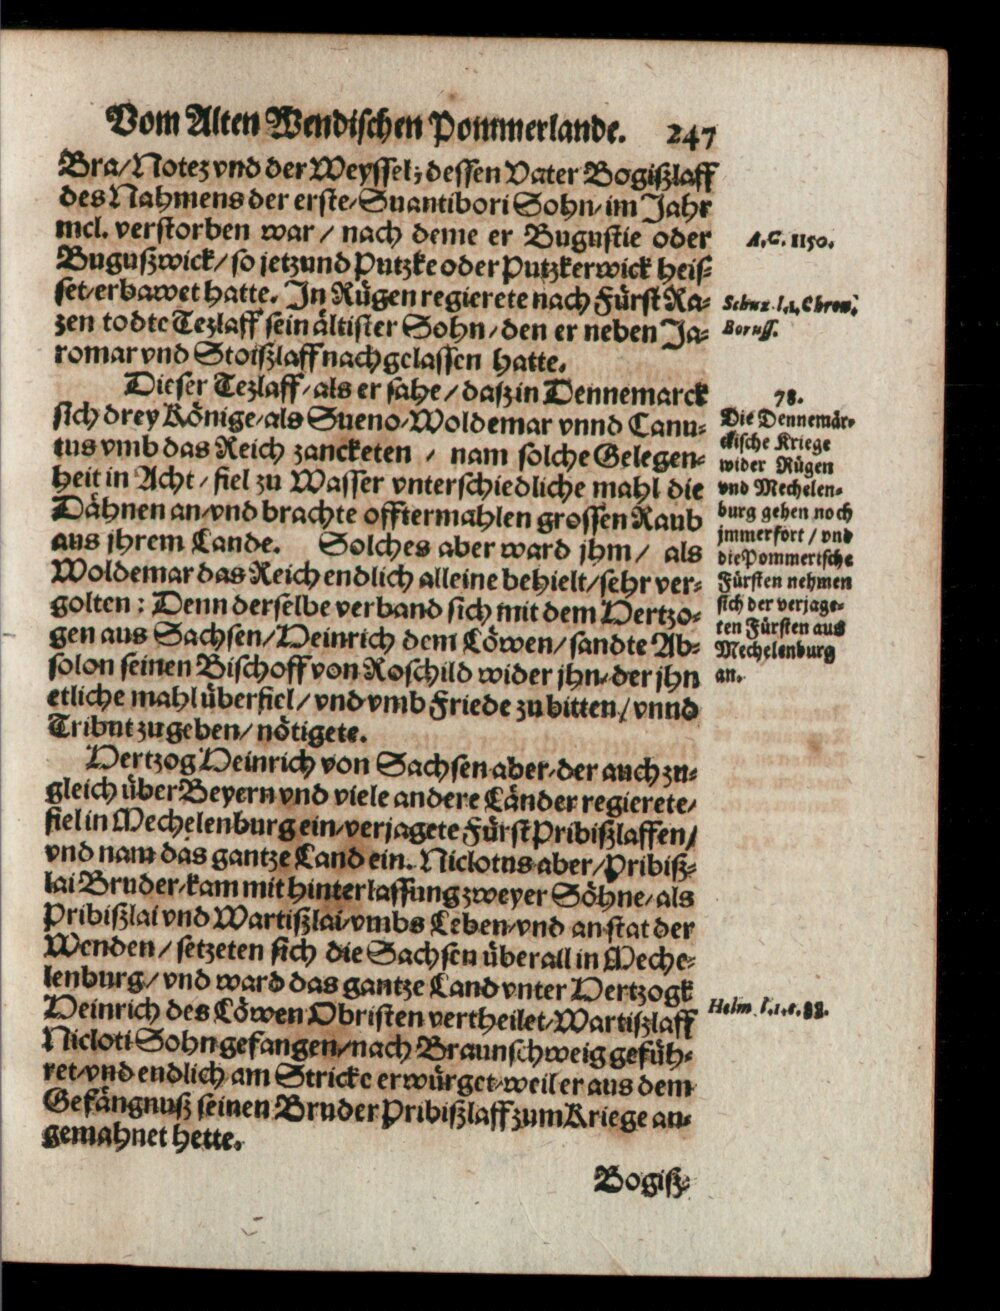 Vom Alten Wendischen Pommerlande. 247
Bra/Notez vnd der Weyssel; dessen Vater Bogißlaff
des Nahmens der erste/Suantibori Sohn/im Jahr
mcl. verstorben war / nach deme er Bugustie oder
Bugußwick/so jetzund Putzke oder Putzkerwick heis-
set/erbawet hatte. In Rügen regierete nach Fürst Ra-
zen todte Tezlaff sein ältister Sohn/den er neben Ja-
romar vnd Stoißlaff nachgelassen hatte.
Dieser Tezlaff/als er sahe/daß in Dennemarck
sich drey Könige/als Sueno/Woldemar vnnd Canu-
tus vmb das Reich zancketen / nam solche Gelegen-
heit in Acht/fiel zu Wasser vnterschiedliche mahl die
Dähnen an/vnd brachte offtermahlen grossen Raub
aus jhrem Lande. Solches aber ward jhm/ als
Woldemar das Reich endlich alleine behielt/sehr ver-
golten: Denn derselbe verband sich mit dem Hertzo-
gen aus Sachsen/Heinrich dem Löwen/sandte Ab-
solon seinen Bischoff von Roschild wider jhn/der jhn
etliche mahl überfiel/vnd vmb Friede zu bitten/vnnd
Tribut zugeben/nötigete.
Hertzog Heinrich von Sachsen aber/der auch zu-
gleich über Beyern vnd viele andere Länder regierete/
fiel in Mechelenburg ein/verjagete Fürst Pribißlaffen/
vnd nam das gantze Land ein. Niclotus aber/Pribiß-
lai Bruder/kam mit hinterlassung zweyer Söhne/als
Pribißlai vnd Wartißlai/vmbs Leben/vnd an stat der
Wenden/setzeten sich die Sachsen überall in Meche-
lenburg/vnd ward das gantze Land vnter Hertzogk
Heinrich des Löwen Obristen vertheilet/Wartißlaff
Nicloti Sohn gefangen/nach Braunschweig gefüh-
ret/vnd endlich am Stricke erwürget/weil er aus dem
Gefängnuß seinen Bruder Pribißlaff zum Kriege an-
gemahnet hette.
Bogiß-
A.C. 1150.
Schuz. l.1. Chron.
Boruss.
78.
Die Dennemär-
ckische Kriege
wider Rügen
vnd Mechelen-
burg gehen noch
jmmerfort / vnd
die Pommerische
Fürsten nehmen
sich der verjage-
ten Fürsten aus
Mechelenburg
an.
Helm. l.1.c.88.